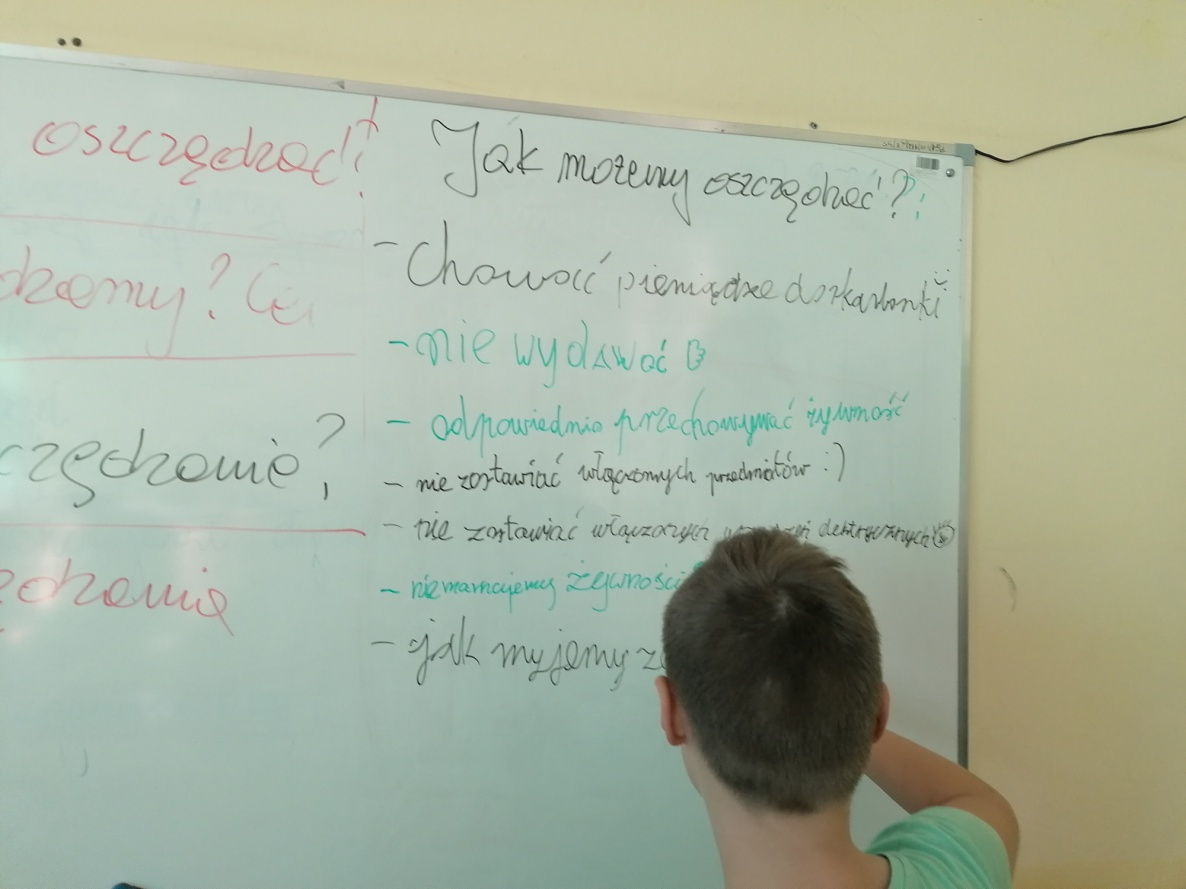 oszczędzać?
dzamy? Cel
czędzanie?
ędzania
Jak możemy oszczędzać?
- Chować pieniądze do skarbonki
- nie wydawać
- odpowiednio przechowywać żywność
- nie zostawiać włączonych przedmiotów :)
- nie zostawiać włączonych elektrycznych
- niemarnujemy żywności
- jak myjemy zę